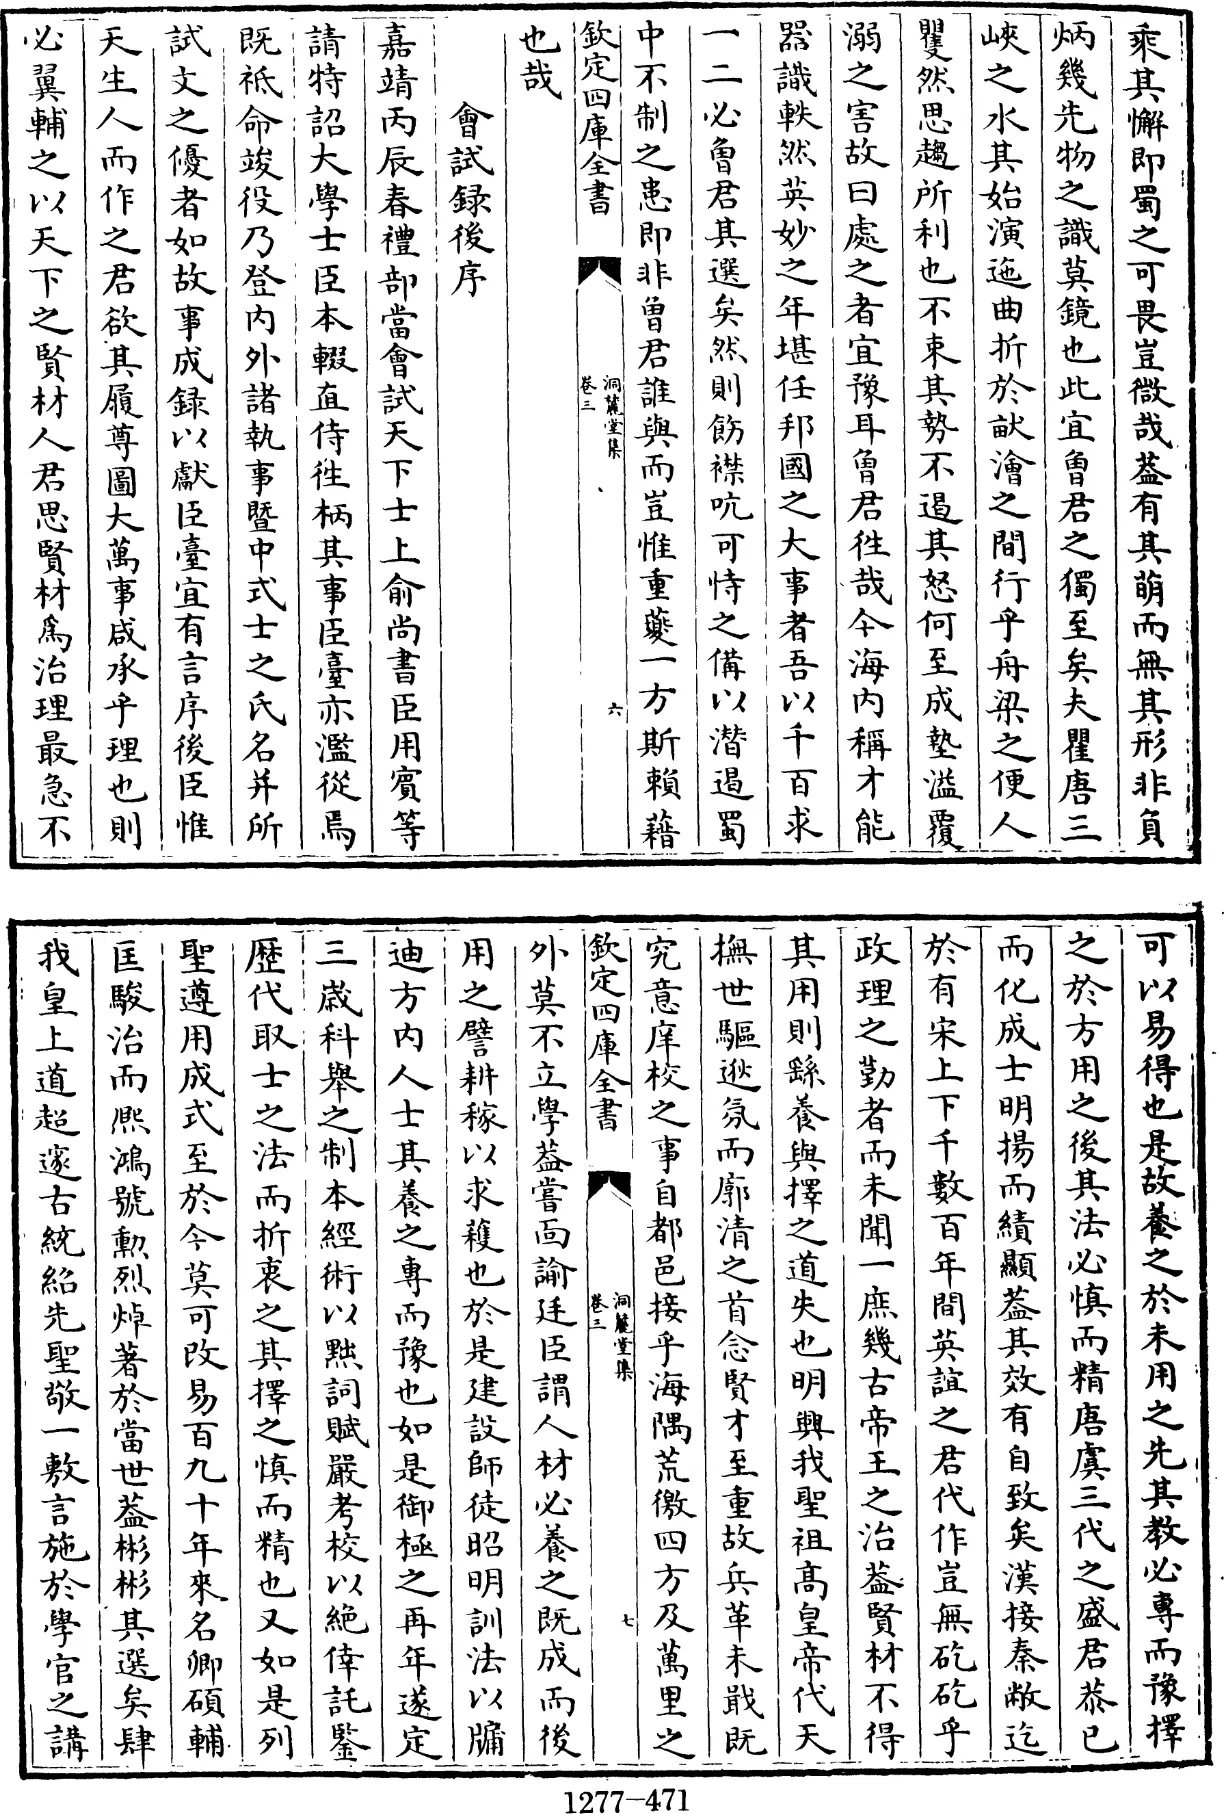 乘其懈即蜀之可畏豈微哉葢有其萌而無其形非負
炳幾先物之識莫鏡也此宜魯君之獨至矣夫瞿唐三
峽之水其始演迤曲折於畎澮之間行乎舟梁之便人
瞿然思趨所利也不束其勢不遏其怒何至成墊溢覆
溺之害故曰處之者宜豫耳魯君徃哉今海内稱才能
器識軼然英妙之年堪任邦國之大事者吾以千百求
一二必魯君其選矣然則飭襟吭可恃之備以潜遏蜀
中不制之患即非魯君誰與而豈惟重夔一方斯賴藉
欽定四庫全書
洞麓堂集
卷三
六
也哉
會試録後序
嘉靖丙辰春禮部當會試天下士上俞尚書臣用賓等
請特詔大學士臣本輟直侍徃柄其事臣臺亦濫從焉
既祗命竣役乃登内外諸執事暨中式士之氏名并所
試文之優者如故事成録以獻臣臺宜有言序後臣惟
天生人而作之君欲其履尊圖大萬事咸承乎理也則
必翼輔之以天下之賢材人君思賢材為治理最急不
可以易得也是故養之於未用之先其教必專而豫擇
之於方用之後其法必慎而精唐虞三代之盛君恭已
而化成士明揚而績顯葢其效有自致矣漢接秦敝迄
於有宋上下千數百年間英誼之君代作豈無矻矻乎
政理之勤者而未聞一庶幾古帝王之治葢賢材不得
其用則繇養與擇之道失也明興我聖祖高皇帝代天
撫世驅逖氛而廓清之首念賢才至重故兵革未戢既
究意庠校之事自都邑接乎海隅荒徼四方及萬里之
欽定四庫全書
洞麓堂集
卷三
七
外莫不立學葢嘗面諭廷臣謂人材必養之既成而後
用之譬耕稼以求穫也於是建設師徒昭明訓法以牖
迪方内人士其養之專而豫也如是御極之再年遂定
三歳科舉之制本經術以黜詞賦嚴考校以絶倖託鑒
歷代取士之法而折衷之其擇之慎而精也又如是列
聖遵用成式至於今莫可改易百九十年來名卿碩輔
匡駿治而熈鴻號勲烈焯著於當世葢彬彬其選矣肆
我皇上道超邃古統紹先聖敬一敷言施於學官之講
1277-471